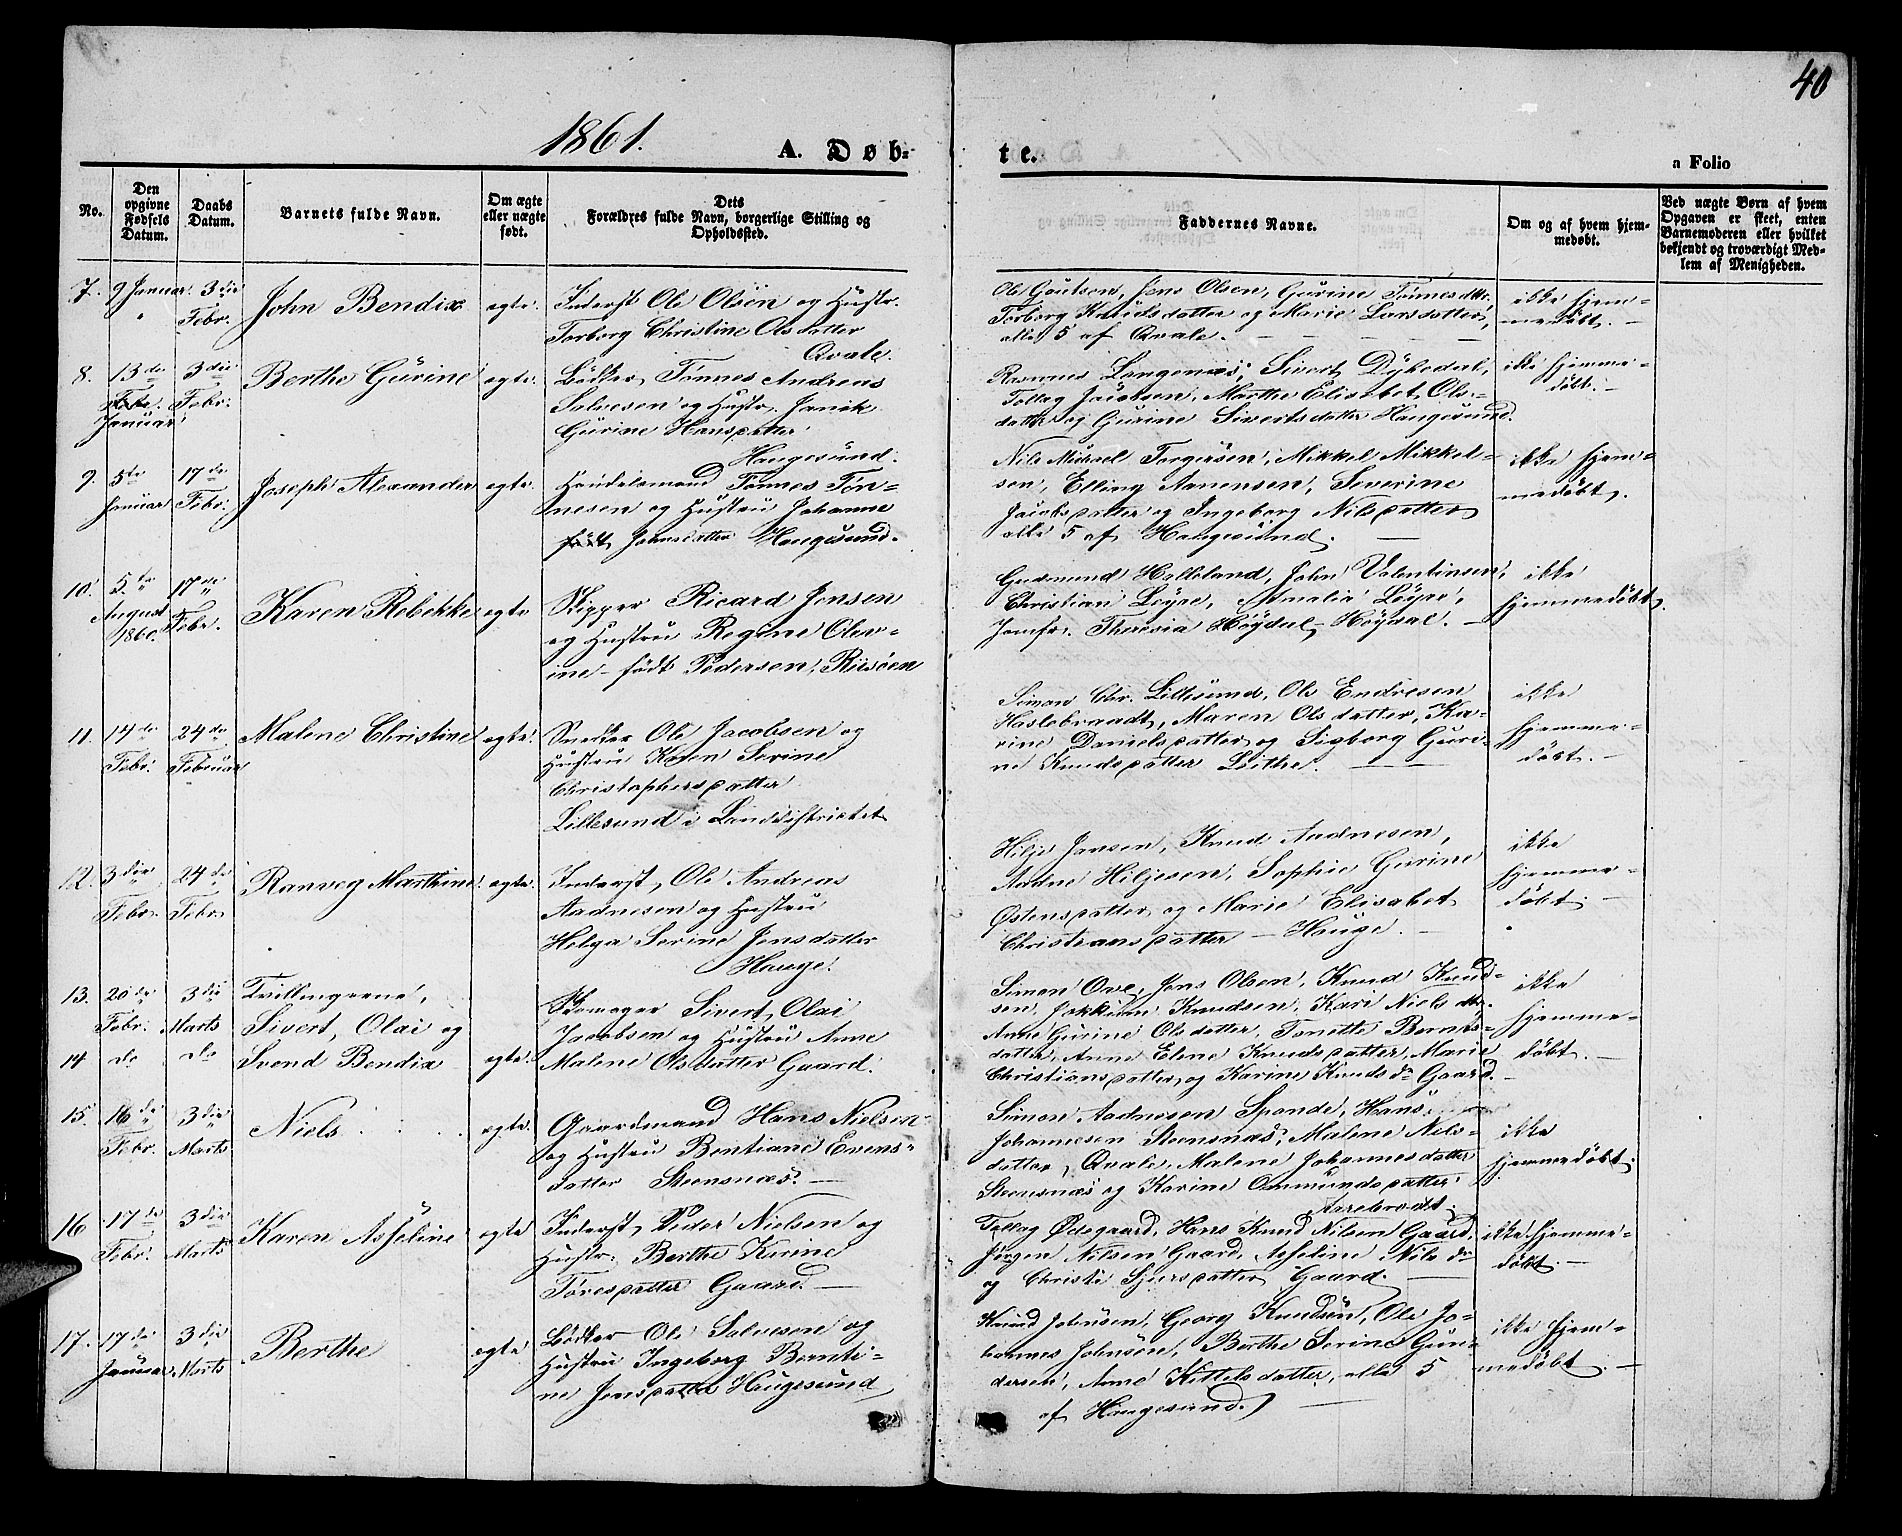 40
1861.
A. Døb-
te.
a Folio
No.
Den
opgivne
Fødsels
Datum.
Daabs
Datum.
Barnets fulde Navn.
Om ægte
eller uægte
født.
Dets
Forældres fulde Navn, borgerlige Stilling og
Opholdssted.
Faddernes Navne.
Om og af hvem hjem-
medøbt.
Ved uægte Børn af hvem
Opgaven er skeet, enten
Barnemoderen eller hvilket
bekjendt og troværdigt Med-
lem af Menigheden.
7. 9 Januar. 3die
Febr.
John Bendix
egte.
Inderst Ole Olsen og Hustr.
Torborg Christine Olsdatter
Qvale.
Ole Goutson, Jens Olsen, Gurine Tønnesdtr.
Torborg Knudsdatter og Marie Larsdatter,
alle 5 af Qvale.
ikke hjem-
medøbt. -
8. 13de
Januar
3die
Febr:
Berthe Gurine
egte.
Bødker Tønnes Andreas
Salvesen og Hustr. Janik
Gurine Hansdatter
Haugesund.
Rasmus Langenæs, Sivert Dybedal,
Tollag Jacobsen, Marthe Elisabet Ols-
datter og Gurine Sivertsdatter Haugesund.
ikke hjemme-
døbt. -
9. 5te
Januar
17de
Febr.
Joseph Alexander
egte.
Handelsmand Tønnes Tøn-
nesen og Hustru Johanne
født Johnsdatter Haugesund.
Nils Michael Torgersen, Mikkel Mikkel-
sen, Elling Aanensen, Severine
Jacobsdatter og Ingeborg Nilsdatter
alle 5 af Haugesund.
ikke hjem-
medøbt.
10. 5te
August
1860.
17de
Febr.
Karen Rebekke
egte
Skipper Ricard Jensen
og Hustru Regine Olev-
ine født Pedersen, Risøen
Gudmund Helleland, John Valentinsen,
Christian Løyre, Amalia Løyre,
Jomfr. Theresia Høydal, Høydal.
ikke
hjemmedøbt.
11. 14de
Febr.
24de
Februar
Malene Christine
egte.
Snedker Ole Jacobsen og
Hustru Karen Serine
Christophersdatter
Lillesund i Landdistrictet
Simon Chr. Lillesund, Ole Endresen
Haslebraadt, Maren Olsdatter, Ka-
rine Danielsdatter og Sigborg Guri-
ne Knudsdatter Leithe.
ikke
hjemme-
døbt. -
12. 3die
Febr.
24de
Febr.
Ranveg Marthine
egte.
Inderst Ole Andreas
Aadnesen og Hustru
Helga Serine Jensdatter
Hauge.
Hilje Jansen, Knud Aadnesen,
Aadne Hiljesen, Sophie Gurine
Østensdatter og Marie Elisabet
Christiansdatter - Hauge.
ikke
hjemme-
døbt. -
13. 20de
Febr.
3die
Marts
Tvillingerne,
Sivert Olai og
14 do do
Svend Bendix
egte.
Skomager Sivert Olai
Jacobsen og Hustru Anne
Malene Olsdatter Gaard.
Simon Ove, Jens Olsen, Knud Knud-
sen, Jokkum Knudsen, Kari Nielsdtr.
Anne Gurine Olsdatter, Tonette Berents-
datter, Anne Elene Knudsdatter, Marie
Christiansdatter og Karine Knudsdr Gaard.
ikke
hjemme-
døbt. -
15. 16de
Febr.
3die
Marts
Niels
egte.
Gaardmand Hans Nielsen
og Hustru Bentiane Evens-
datter Steensnæs. -
Simon Aadnesen Spande, Hans
Johannesen Steensnæs, Malene Nils-
datter Qvale, Malene Johannesdatter
Steensnæs og Karine Ommundsdatter
Aarebrodt.
ikke
hjemmedøbt.
16 17de
Febr.
3die
Marts
Karen Asseline
egte
Inderst Peder Nielsen og
Hustr. Berthe Kirine
Toresdatter Gaard. -
Tollag Ødegaard, Hans Knud Nilsen Gaard,
Jørgen Nilsen Gaard, Asseline Nils dr
og Christi Sjursdatter Gaard. -
ikke hjemme-
døbt. -
17. 17de
Januar
3die
Marts
Berthe
egte
Bødker Ole Salvesen og
Hustru Ingeborg Bernti-
ne Jensdatter Haugesund
Knud Johnsen, Georg Knudsen, Ole Jo-
hannes Johnsen, Berthe Serine Gun-
dersen, Anne Kittelsdatter, alle 5
af Haugesund.
ikke hjem-
medøbt. -